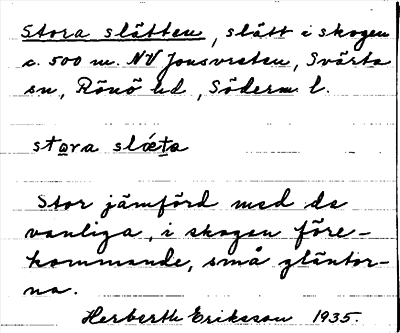 Stora slätten, slätt i skogen
c. 500 m. NV Jonsvreten, Svärta
sn, Rönö hd, Söderm. l.
stora slǽta
Stor jämförd med de
vanliga, i skogen före-
kommande, små gläntor-
na.
Herberth Eriksson 1935.